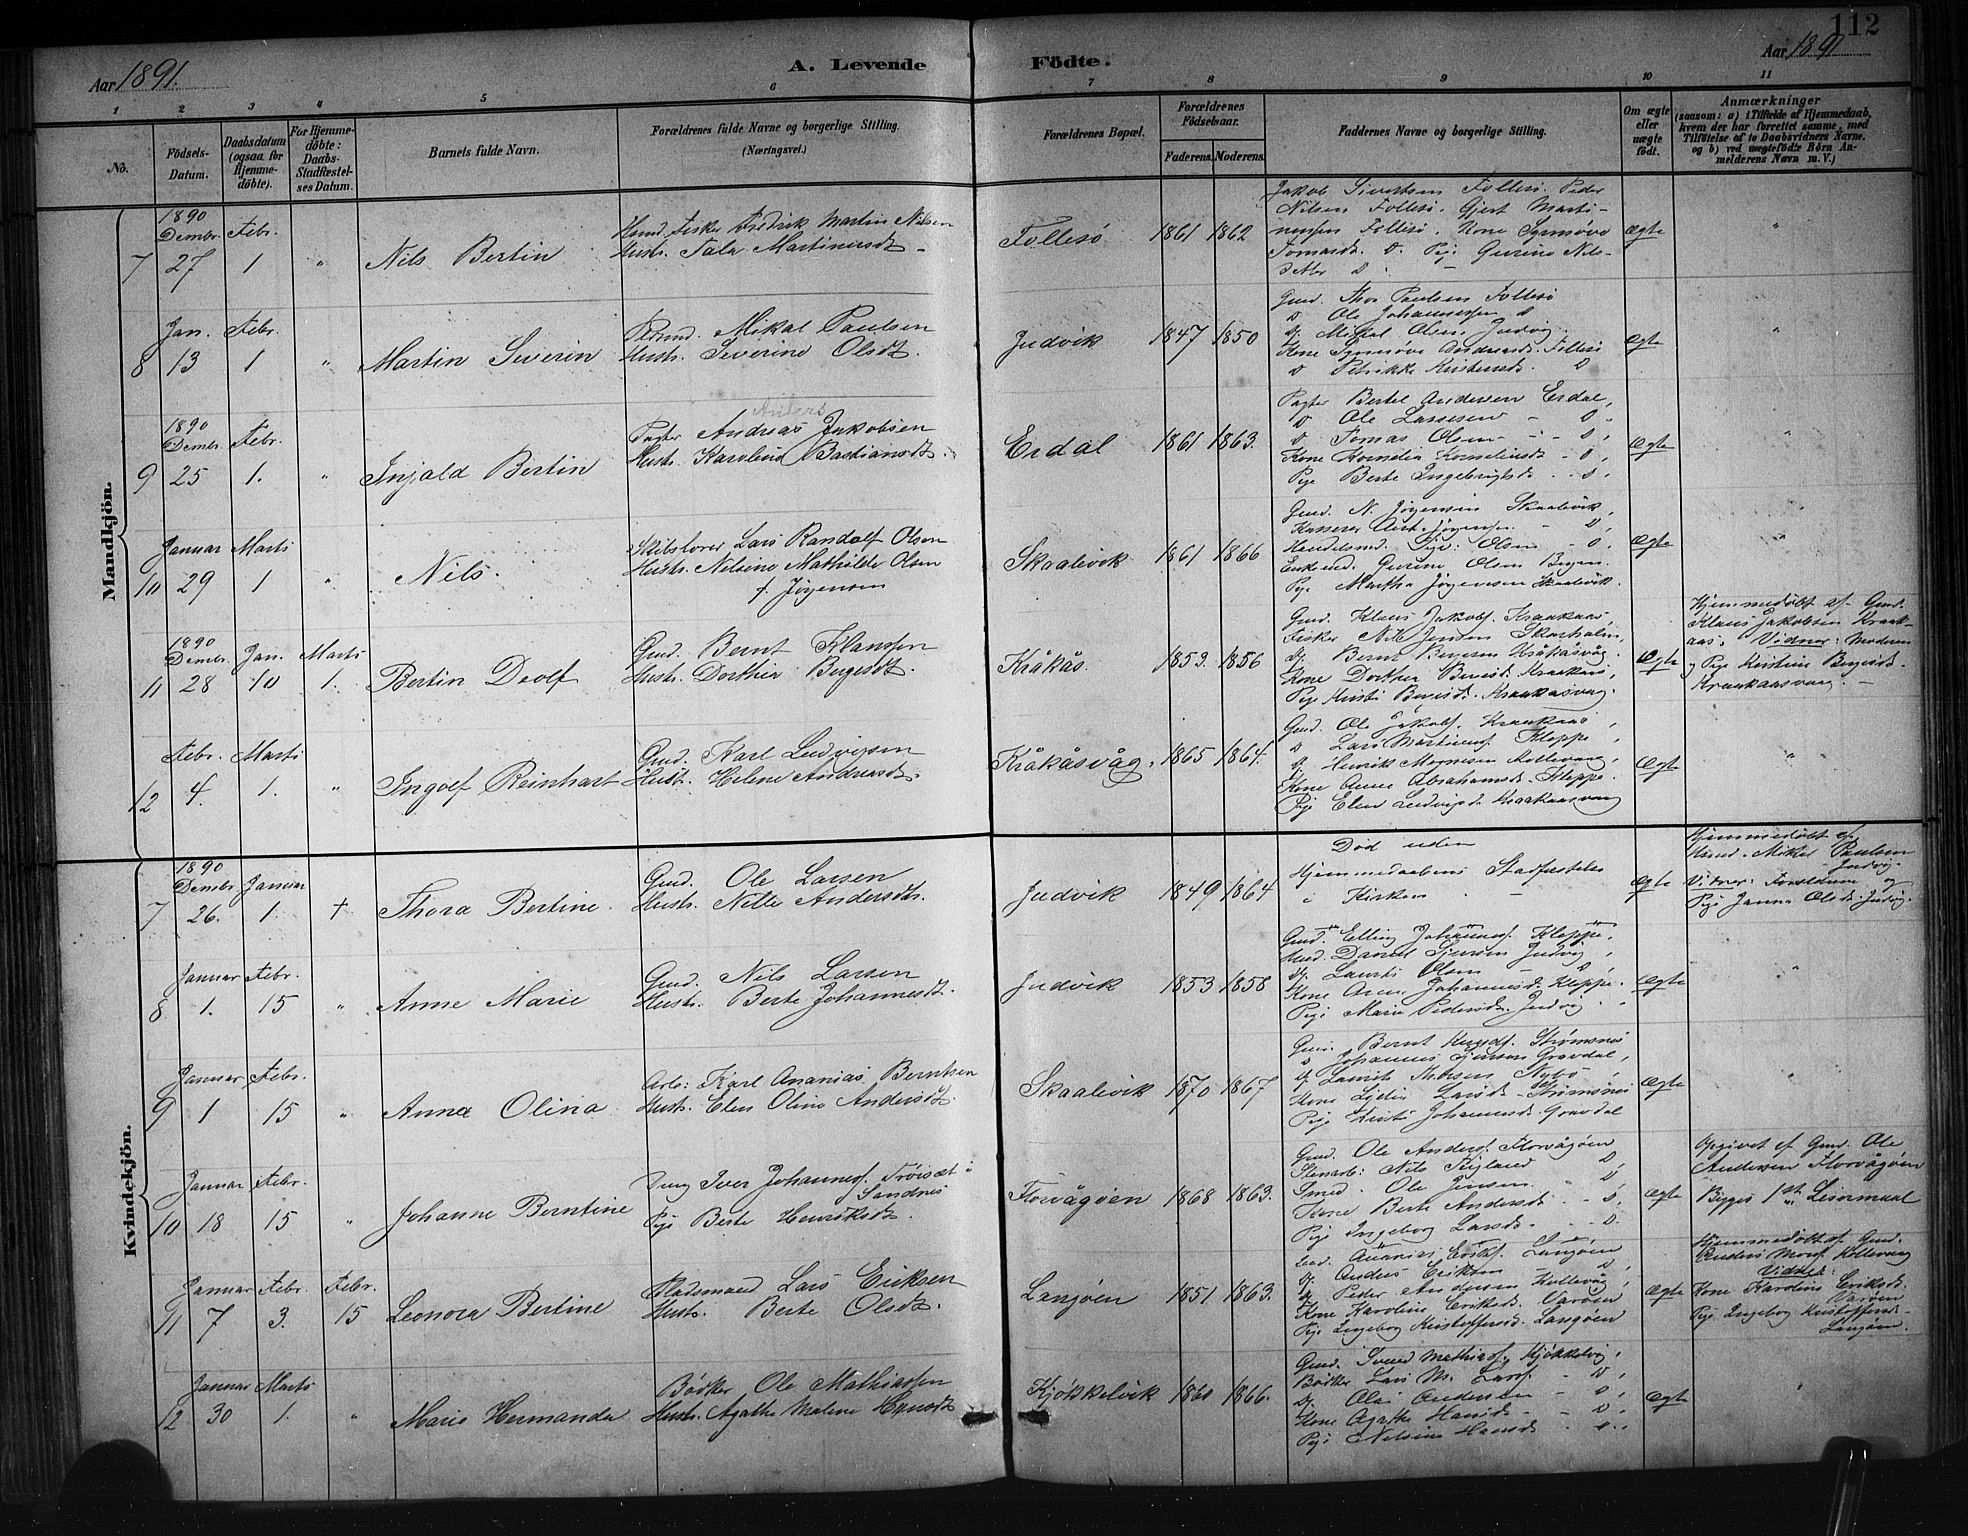 112
Aar 1891.
A. Levende Födte.
Aar 1891
1 2 3 4 5 6 7 8 9 10 11
No.
Födsels-Datum.
Daabsdatum (ogsaa for Hjemme-döbte).
For Hjemme-döbte: Daabs-Stadfæstel-ses Datum.
Barnets fulde Navn.
Forældrenes fulde Navne og borgerlige Stilling.
(Næringsvei.)
Forældrenes Bopæl.
Forældrenes Födselsaar.
Faderens. Moderens.
Faddernes Navne og borgerlige Stilling.
Om ægte eller uægte födt.
Anmærkninger
(saasom: a) i Tilfælde af Hjemmedaab, hvem der har forrettet samme, med Tilföielse af to Daabsvidners Navne, og b) ved uægtefödte Börn An-melderens Navn m. V.)
Mandkjön.
7 1890 Dembr. 27 Febr. 1 " Nils Bertin
Huusm. Fisker Fredrik Martin Nilsen
Hustr. Tala Martinusdt.
Follesö 1861 1862
Jakob Sivertsen Follesö. Peder
Nilsen Follesö. Gjert Marti-
nusen Follesö. Kone Synnöve
Tomasdt. D. Pige Gurine Nils-
datter D
Ægte "
8 Jan. 13 Febr. 1 " Martin Severin
Mikal Paulsen
Hustr. Severine Olsdt.
Judvik 1847 1850
Gmd. Thor Paulsen Follesö
D Ole Johannessen D
Dj. Mikal Olsen Judvig
Kone Synnöve Andreasdt. Follesö
D Petrikke Kristensdt. D
Ægte "
9 1890 Dembr. 25 Febr. 1. " Injald Bertin
Anders
Pagter Andreas Jakobsen
Hustr. Karoline Bastiansdt.
Erdal 1861 1863.
Pagter Bertel Andersen Erdal,
D Ole Lassesen - D,
D Tomas Olsen - D,
Kone Kornelia Kornelius dt. D,
Pige Berte Ingebrigtsdt. D,
Ægte "
10 Januar 29 Marts 1 " Nils.
Skibsförer Lars Randolf Olsen
Hustr. Nelsine Mathilde Olsen
f. Jörgensen
Skaalevik 1861 1866
Gmd. N. Jörgensen Skaalevik,
Kasserer Jörgensen - D,
Handelsmd. Olsen - D,
Gurine Olsen Bergen.
Pige Martha Jörgensen Skaalevik.
Ægte "
11 1890 Dembr. 28 Jan. 10 Marts 1. Bertin Deolf
Gmd. Bernt Klausssen
Hustr. Dorthea Børgesdt.
Kråkås. 1853. 1856
Gmd. Klaus Jakobs. Kraakaas,
Fisker Nils Jensen Skarholm,
Dj. Bernt Kråkåsvåg.
Kone Dorthea Kraakaas,
Pige Kristi Kraakaasvaag.
Ægte
Hjemmedöbt af Gmd.
Klaus Jakobsen Kraak-
aas. Vidner: Moderen
og Pige Kristine
Kraakaasvaag. -
12 Febr. 4. Marts 1. " Ingolf Reinhart
Gmd. Karl Ludvigsen
Hustr. Helene Andreasdt.
Kråkåsvåg. 1865 1864.
Gmd. Ole Jakobs. Kraakaas,
D Lars Martinus. Kleppe,
Dj. Henrik Mognesen
Kone Anne Abrahamsdt. Kleppe.
Pige Elen Ludvigsdt. Kraakaasvaag
Ægte "
Kvindekjön.
7 1890 Dembr. 26. Januar 1. † Thora Bertine.
Gmd. Ole Larsen
Hustr. Nille Andersdtr.
Judvik 1849 1864
Död uden
Hjemmedaabens Stadfæstelse
i Kirken -
Ægte
Hjemmedöbt af
Mikal Paulsen
Judvig.
Vidner: Forældrene og
Pige Janna Olsdt. Judvig.
8 Januar 1. Febr. 15 " Anne Marie
Gmd. Nils Larsen
Hustr. Berte Johannesdt.
Judvik 1853 1858
Gmd. Elling Johannes. Kleppe,
Daniel Sjursen Judvig,
Dj. Laurits Olsen - D,
Kone Anna Johannesdt. Kleppe.
Pige Marie Pedersdt. Judvig.
Ægte "
9 Januar 1 Febr. 15 " Anna Olina
Arb: Karl Ananias Berntsen
Hustr. Elen Oline Andersdt.
Skaalevik 1870 1867
Gmd. Bernt Knuds. Strömsnes
D Johannes Sjursen Gravdal,
Dj. Laurits
Kone Larsdt. Strömsnes
Pige Kristi Johannesdt. Gravdal
Ægte
10 Januar 18 Febr. 15 " Johanne Berntine
Ung. Iver Johannes. Tröisæt i
Sandnes
Pige Berte Henriksdt.
Florvågöen 1868 1863.
Gmd. Ole Anders. Florvågöen
Stenarb: Nils D
Smed. Ole Jensen D
Kone Berte Andersdt. - D,
Pige Ingeborg Larsdt. - D.
ægte
Opgivet af Gmd. Ole
Andersen Florvågöen
Begges 1st. Leiermaal
11 Januar 7 Febr. 3. Febr. 15 Leonora Bertine
Pladsmand Lars Eriksen
Hustr. Berte Olsdt.
Langöen 1851 1863.
Ananias Eriks. Langöen
Dj. Anders Eriksen - D,
Dj. Peder Andersen Kollevåg,
Kone Karoline Eriksdt. Varöen
Pige Ingeborg Kristoffersdt. Langöen
Ægte
Hjemmedöbt af Gmd.
Anders Mons. Kollevaag
Vidner:
Kone Karoline Eriksdt.
Varöen
Pige Ingeborg Kristoffersdt.
Langöen.
12 Januar 30 Marts 1. " Marie Hermanda
Bödker Ole Mathiassen
Hustr. Agathe Malene
Kjökkelvik 1860 1866.
Gmd. Svend Mathias. Kjökkelvig,
Bödker Lars M. Lars. - D,
Dj. Olai Andersen - D,
Kone Agathe Hansdt. - D
Pige Nelsine Hansdt. D.
Ægte "